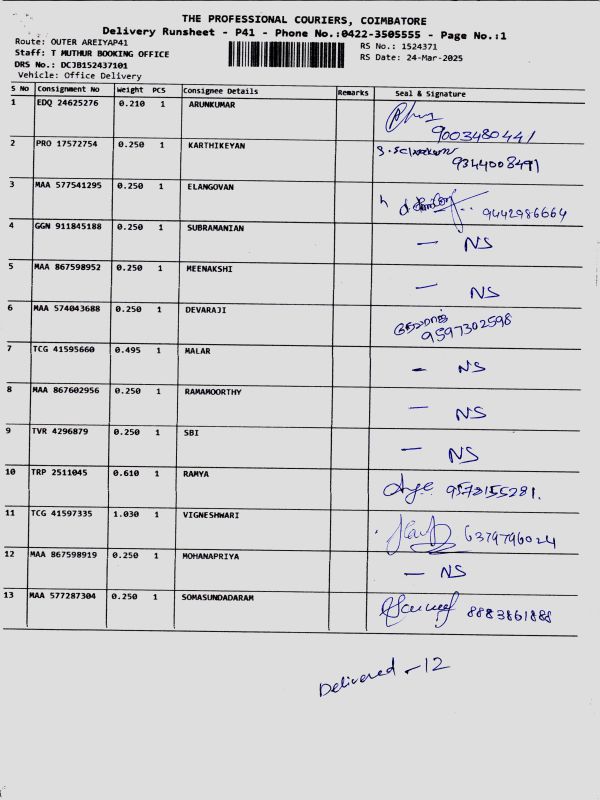 THE PROFESSIONAL COURIERS, COIMBATORE
Delivery Runsheet - P41 - Phone No.:0422-3505555 - Page No.:1
Route: OUTER AREIYAP41
RS No.: 1524371
Staff: T MUTHUR BOOKING OFFICE
RS Date: 24-Mar-2025
DRS No.: DCJB152437101
Vehicle: Office Delivery
S No Consignment No Weight PCS Consignee Details Remarks Seal & Signature
1 EDQ 24625276 0.210 1 ARUNKUMAR
9003480441
2 PRO 17572754 0.250 1 KARTHIKEYAN
9344008491
3 MAA 577541295 0.250 1 ELANGOVAN
9442986664
4 GGN 911845188 0.250 1 SUBRAMANIAN
— NS
5 MAA 867598952 0.250 1 MEENAKSHI
— NS
6 MAA 574043688 0.250 1 DEVARAJI
9597302598
7 TCG 41595660 0.495 1 MALAR
- NS
8 MAA 867602956 0.250 1 RAMAMOORTHY
— NS
9 TVR 4296879 0.250 1 SBI
— NS
10 TRP 2511045 0.610 1 RAMYA
9573155281.
11 TCG 41597335 1.030 1 VIGNESHWARI
6379796024
12 MAA 867598919 0.250 1 MOHANAPRIYA
— NS
13 MAA 577287304 0.250 1 SOMASUNDADARAM
8883861888
Delivered - 12